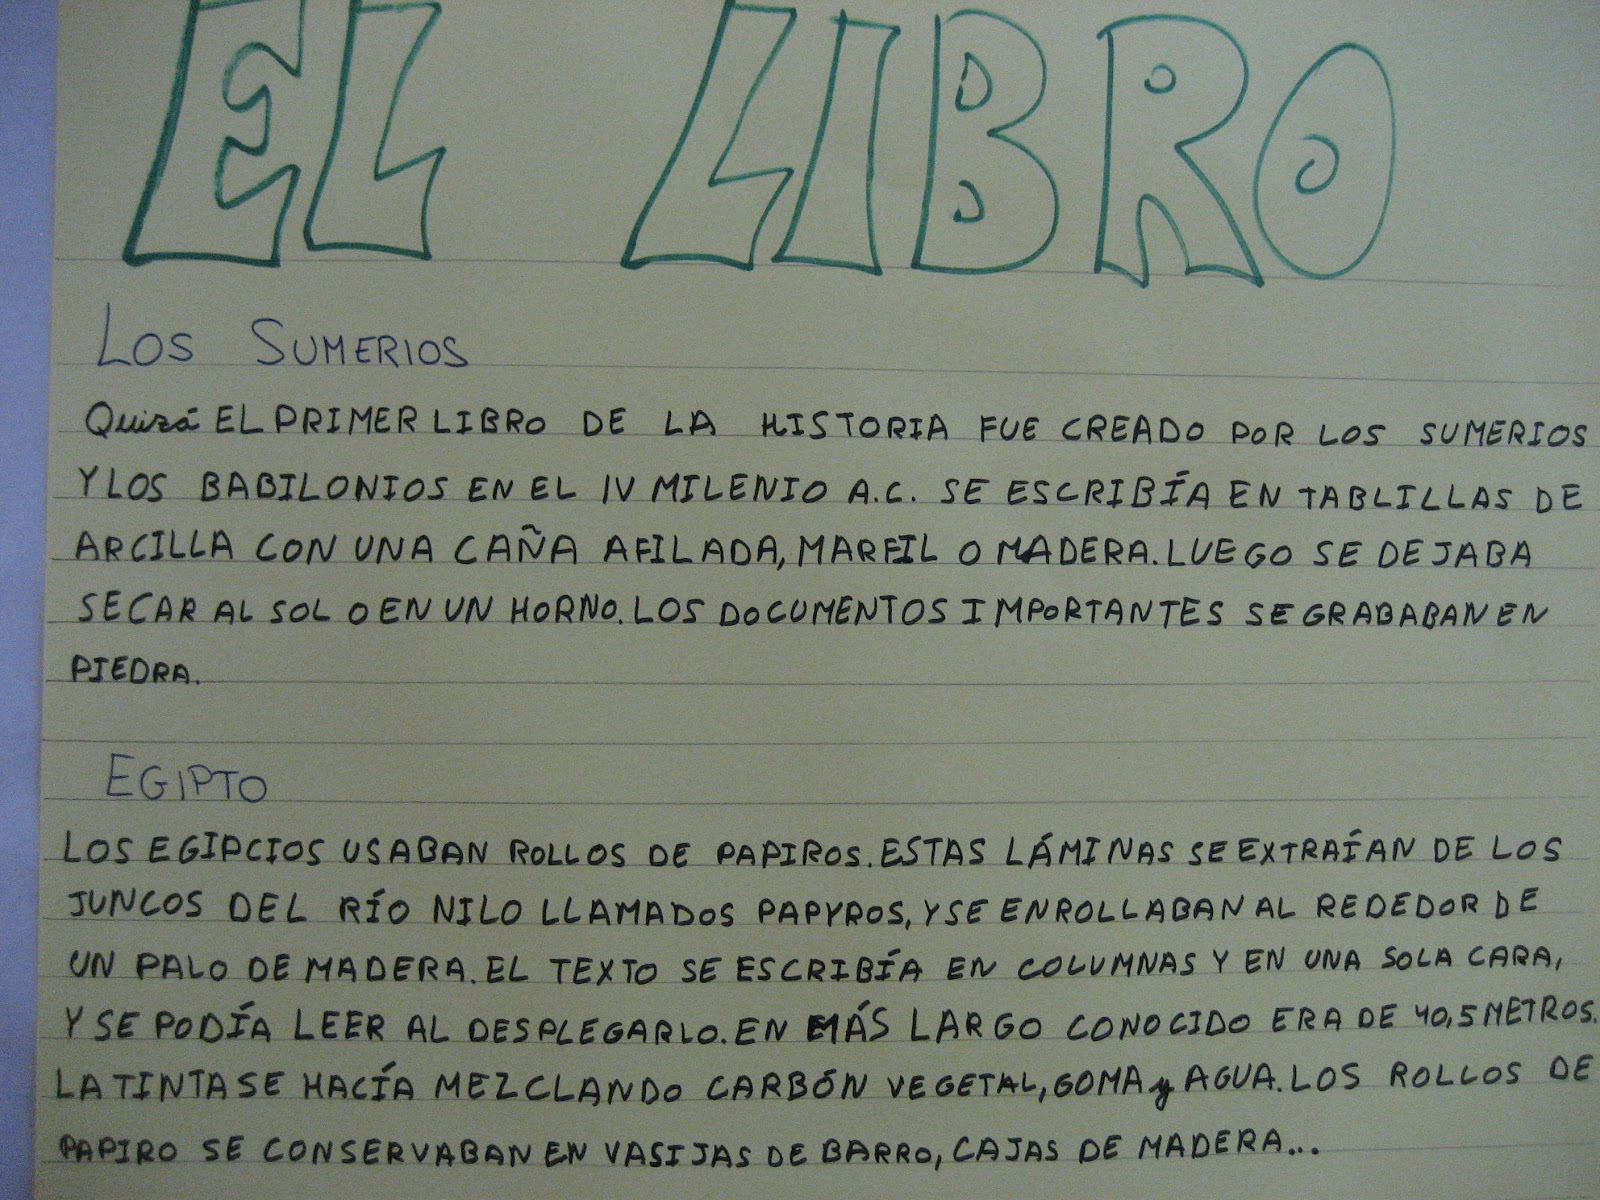 EL LIBRO
LOS SUMERIOS
Quizá EL PRIMER LIBRO DE LA HISTORIA FUE CREADO POR LOS SUMERIOS
Y LOS BABILONIOS EN EL IV MILENIO A.C. SE ESCRIBÍA EN TABLILLAS DE
ARCILLA CON UNA CAÑA AFILADA, MARFIL O MADERA. LUEGO SE DEJABA
SECAR AL SOL O EN UN HORNO. LOS DOCUMENTOS IMPORTANTES SE GRABABAN EN
PIEDRA.
EGIPTO
LOS EGIPCIOS USABAN ROLLOS DE PAPIROS. ESTAS LÁMINAS SE EXTRAÍAN DE LOS
JUNCOS DEL RÍO NILO LLAMADOS PAPYROS, Y SE ENROLLABAN AL REDEDOR DE
UN PALO DE MADERA. EL TEXTO SE ESCRIBÍA EN COLUMNAS Y EN UNA SOLA CARA,
Y SE PODÍA LEER AL DESPLEGARLO. EN MÁS LARGO CONOCIDO ERA DE 40,5 METROS.
LA TINTA SE HACÍA MEZCLANDO CARBÓN VEGETAL, GOMA y AGUA. LOS ROLLOS DE
PAPIRO SE CONSERVABAN EN VASIJAS DE BARRO, CAJAS DE MADERA...